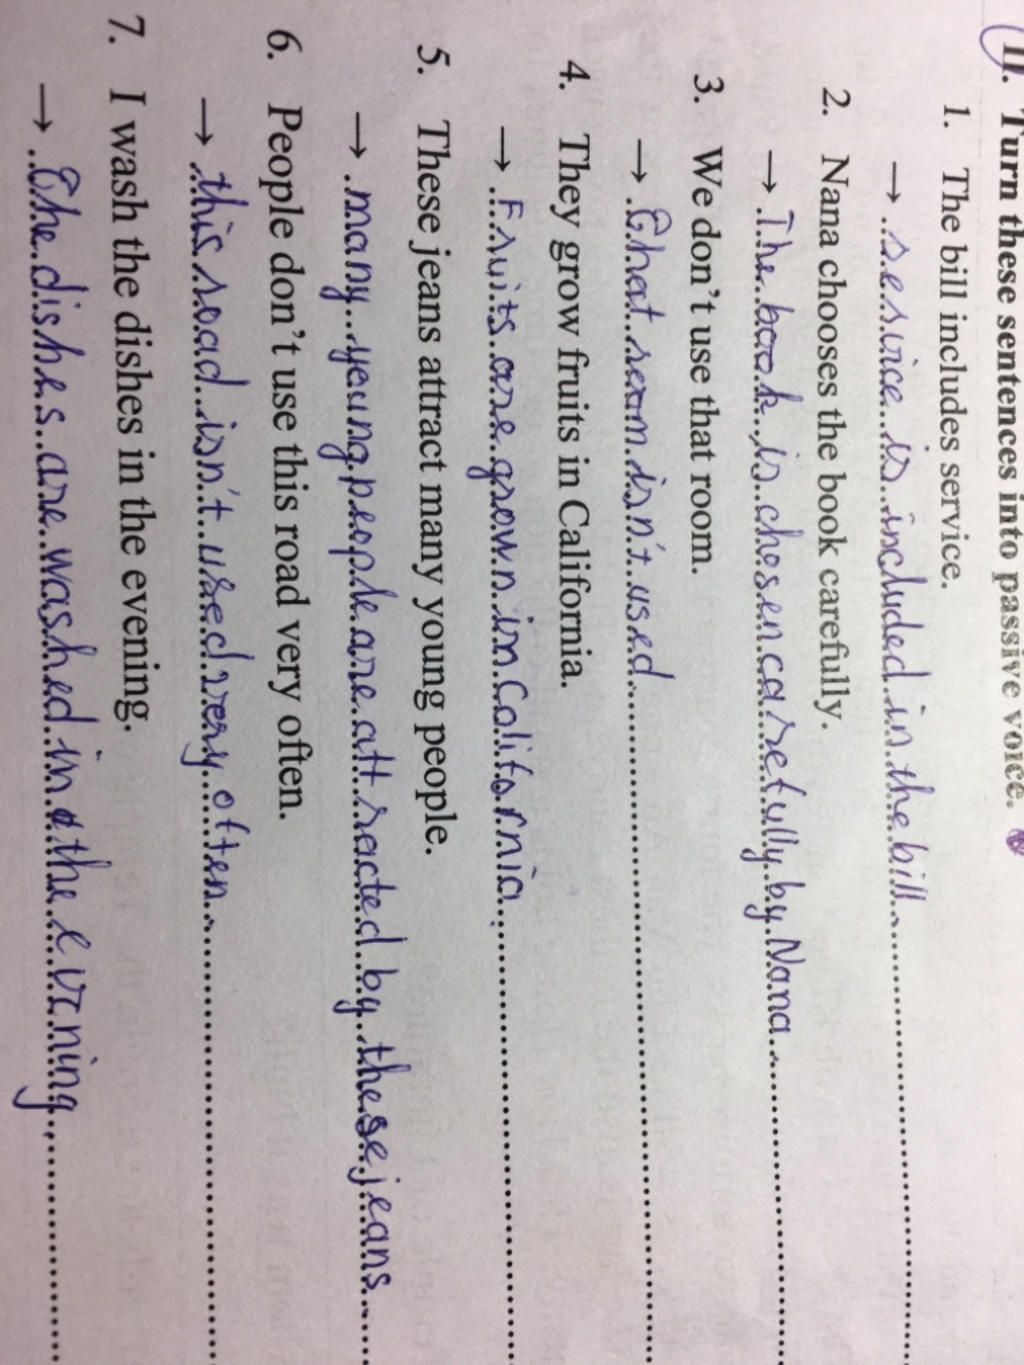 II. Turn these sentences into passive voice.
1. The bill includes service.
→ service is included in the bill
2. Nana chooses the book carefully.
→ The book is chosen carefully by Nana
3. We don't use that room.
→ That room isn't used
4. They grow fruits in California.
→ Fruits are grown in California
5. These jeans attract many young people.
→ many young people are attracted by these jeans
6. People don't use this road very often.
→ this road isn't used very often
7. I wash the dishes in the evening.
→ The dishes are washed in the evening